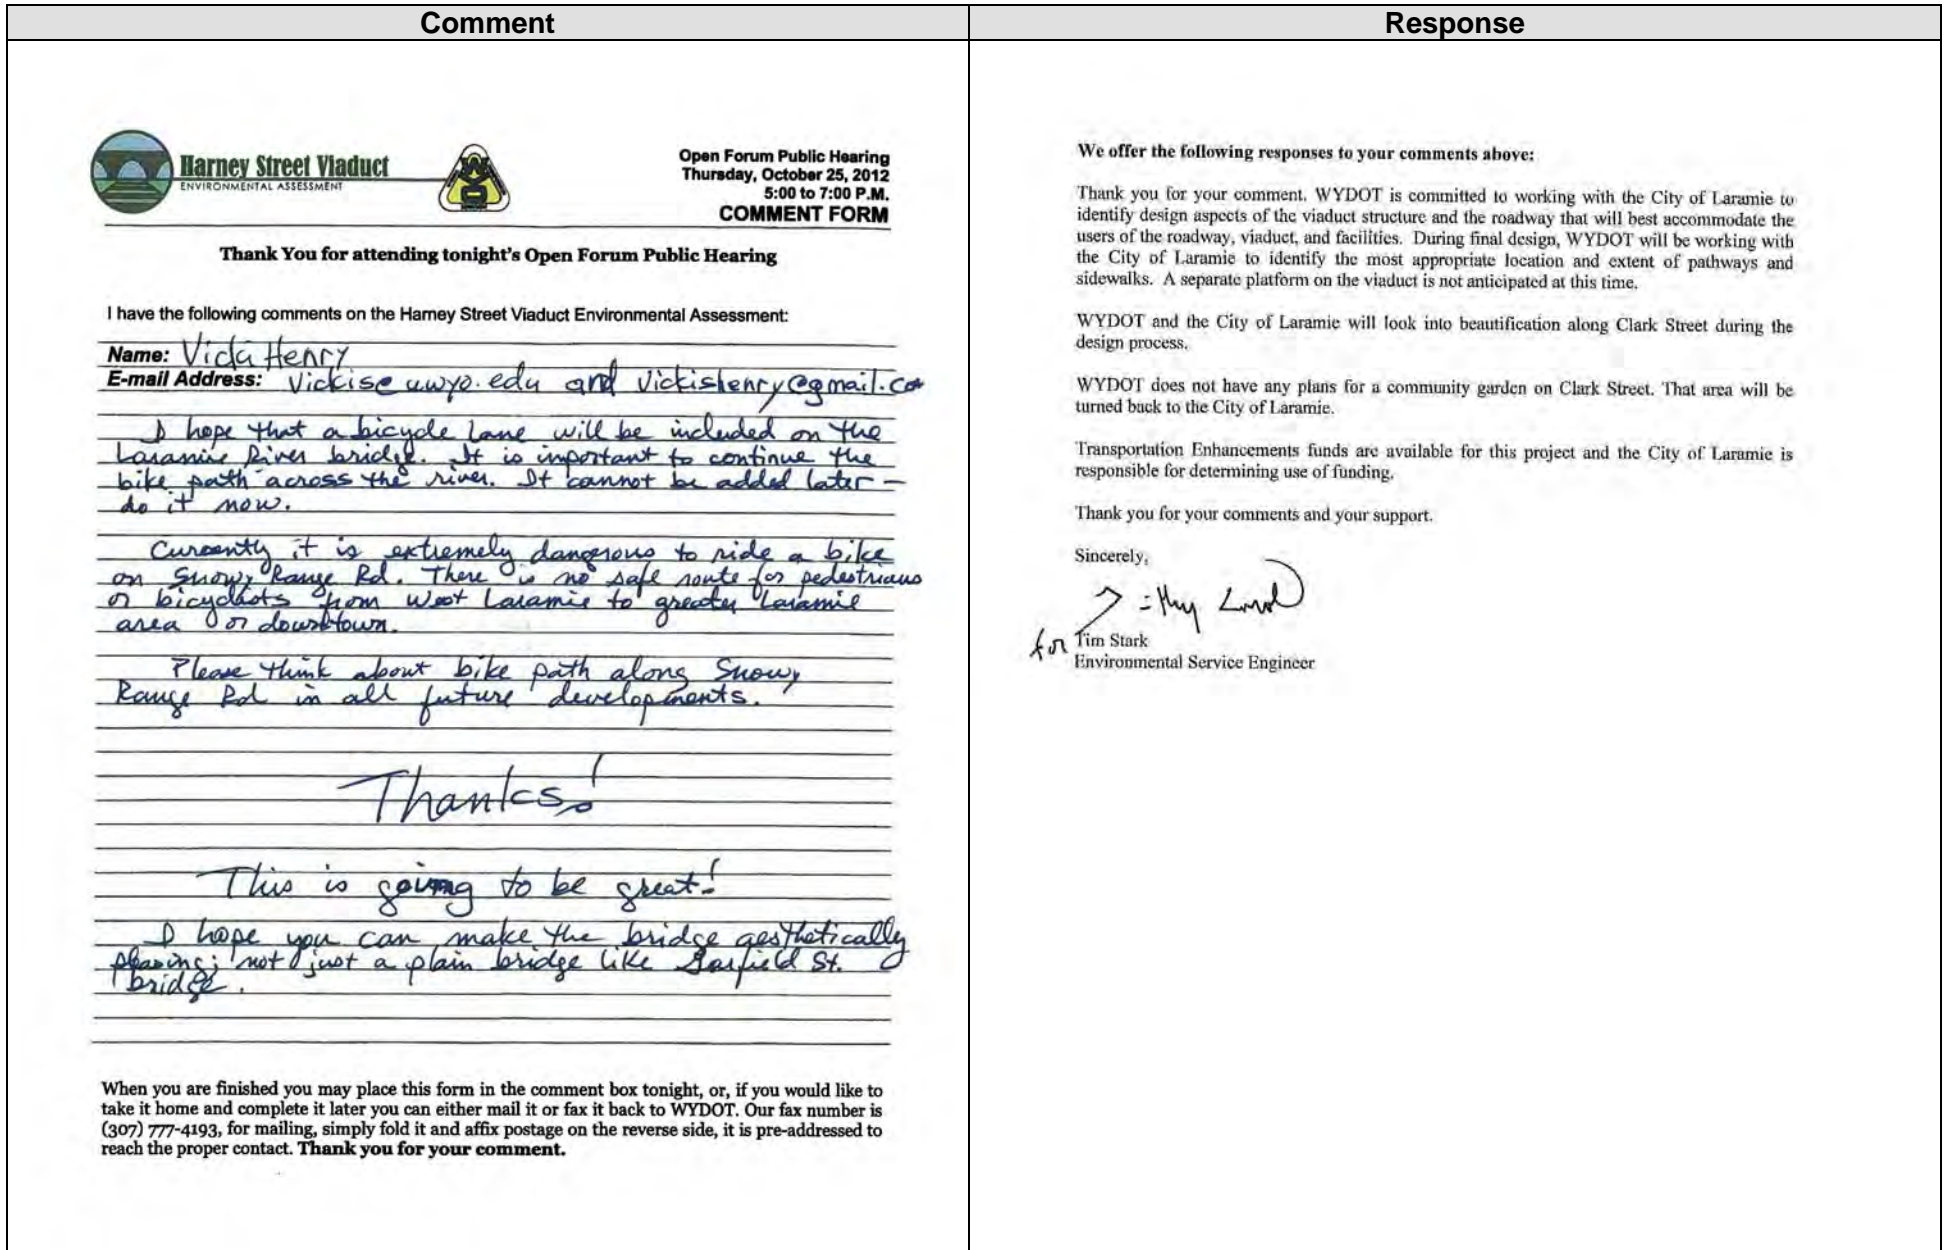 Comment
Response
Harney Street Viaduct
ENVIRONMENTAL ASSESSMENT
WYDOT
Open Forum Public Hearing
Thursday, October 25, 2012
5:00 to 7:00 P.M.
COMMENT FORM
Thank You for attending tonight's Open Forum Public Hearing
I have the following comments on the Harney Street Viaduct Environmental Assessment:
Name: Henry
E-mail Address: and vickishenry@gmail.co
I hope that a bicycle lane will be included on the
Laramie River bridge. It is important to continue the
bike path across the river. It cannot be added later –
do it now.
Currently it is extremely dangerous to ride a bike
on Snowy Range Rd. There is no safe route for pedestrians
or bicyclists from West Laramie to greater Laramie
area or downtown.
Please think about bike path along Snowy
Range Rd in all future developments.
Thanks!
This is going to be great!
I hope you can make the bridge aesthetically
pleasing; not just a plain bridge like Garfield St.
bridge.
When you are finished you may place this form in the comment box tonight, or, if you would like to
take it home and complete it later you can either mail it or fax it back to WYDOT. Our fax number is
(307) 777-4193, for mailing, simply fold it and affix postage on the reverse side, it is pre-addressed to
reach the proper contact. Thank you for your comment.
We offer the following responses to your comments above:
Thank you for your comment. WYDOT is committed to working with the City of Laramie to
identify design aspects of the viaduct structure and the roadway that will best accommodate the
users of the roadway, viaduct, and facilities. During final design, WYDOT will be working with
the City of Laramie to identify the most appropriate location and extent of pathways and
sidewalks. A separate platform on the viaduct is not anticipated at this time.
WYDOT and the City of Laramie will look into beautification along Clark Street during the
design process.
WYDOT does not have any plans for a community garden on Clark Street. That area will be
turned back to the City of Laramie.
Transportation Enhancements funds are available for this project and the City of Laramie is
responsible for determining use of funding.
Thank you for your comments and your support.
Sincerely,
for Tim Stark
Environmental Service Engineer